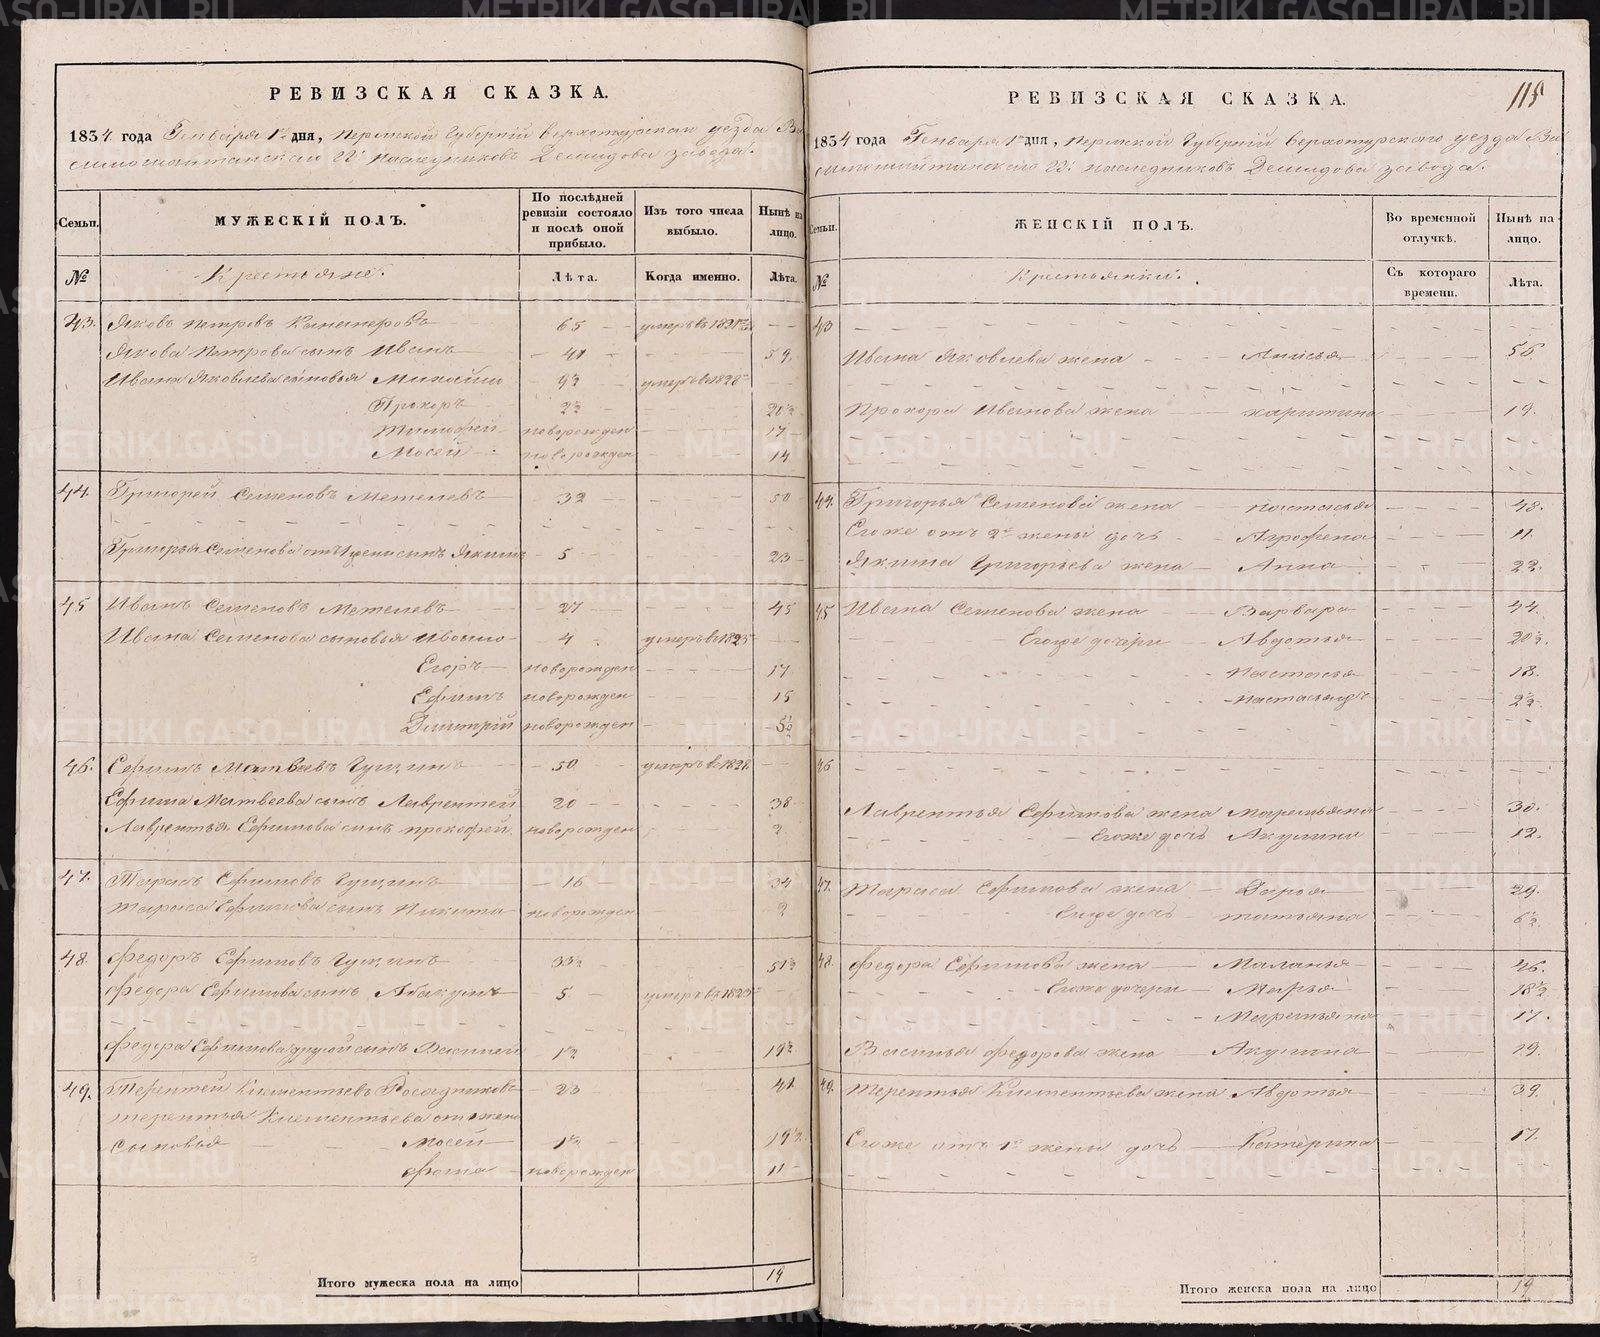 РЕВИЗСКАЯ СКАЗКА.
1834 года Генваря 1го дня, Пермской Губернiи Верхотурскаго уезда Ви
симошайтанскаго Гг. наследниковъ Демидова завода.
Семьи. МУЖЕСКIЙ ПОЛЪ. По послѣдней ревизiи состояло и послѣ оной прибыло. Изъ того числа выбыло. Нынѣ на лицо.
№ Крестьяне. Лѣта. Когда именно. Лѣта.
43. Яковъ Петровъ 65 умеръ въ
Якова Петрова сынъ Иванъ 41 59.
Ивана Яковлева сыновья Михайло 9½ умеръ въ 1828
Прокоръ 2½ 20½
Тимофей новорожден 17
Мосей новорожден 14
44. Григорей Семеновъ Метелевъ 32 50
Григорья Семенова отъ 1 жены сынъ Якимъ 5 23
45 Иванъ Семеновъ Метелевъ 27 45
Ивана Семенова сыновья Ивашо 4 умеръ въ 1825
Егоръ новорожден 17
Ефимъ новорожден 15
Дмитрiй новорожден 5½
46. Ефимъ Матвеевъ Гущинъ 50 умеръ въ 1828
Ефима Матвеева сынъ Лаврентей 20 38
Лаврентья Ефимова сынъ Прокофей новорожден 2
47. Тарасъ Ефимовъ Гущинъ 16 34
Тараса Ефимова сынъ Никита новорожден 2
48. Федоръ Ефимовъ Гущинъ 33½ 51½
Федора Ефимова сынъ Абакумъ 5 умеръ въ 1825
Федора Ефимова другой сынъ Василей 1½ 19½
49. Терентей Клементьевъ Росадниковъ 23 41
Терентья Клементьева от 1 жены
сыновья Мосей 1½ 19½
Фома новорожден 11
Итого мужеска пола на лицо 19
115
РЕВИЗСКАЯ СКАЗКА.
1834 года Генваря 1го дня, Пермской Губернiй Верхотурского уезда Ви
симошайтанскаго Гг. наследниковъ Демидова завода.
Семьи. ЖЕНСКIЙ ПОЛЪ. Во временной отлучкѣ. Нынѣ на лицо.
№ Крестьянки. Съ котораго времени. Лѣта.
43
Ивана Яковлева жена Анисья 56
Прокора Иванова жена Харитина 19.
44. Григорья Семенова жена Настасья 48.
Егоже отъ 2й жены дочь Агрофена 11
Якима Григорьева жена Анна 22.
45 Ивана Семенова жена Варвара 44.
Егоже дочери Авдотья 20½
Настасья 18.
2½
46
Лаврентья Ефимова жена Маремьяна 30.
Егоже дочь Акулина 12.
47. Тараса Ефимова жена Дарья 29.
Егоже дочь Татьяна 6½
48. Федора Ефимова жена Маланья 46.
Егоже дочери Марья 18½
Маремьяна 17.
Василья Федорова жена Акулина 19.
49. Терентья Клементьева жена Авдотья 39.
Егоже отъ 1й жены дочь Катерина 17.
Итого женска пола на лицо 19
METRIKI.GASO-URAL.RU